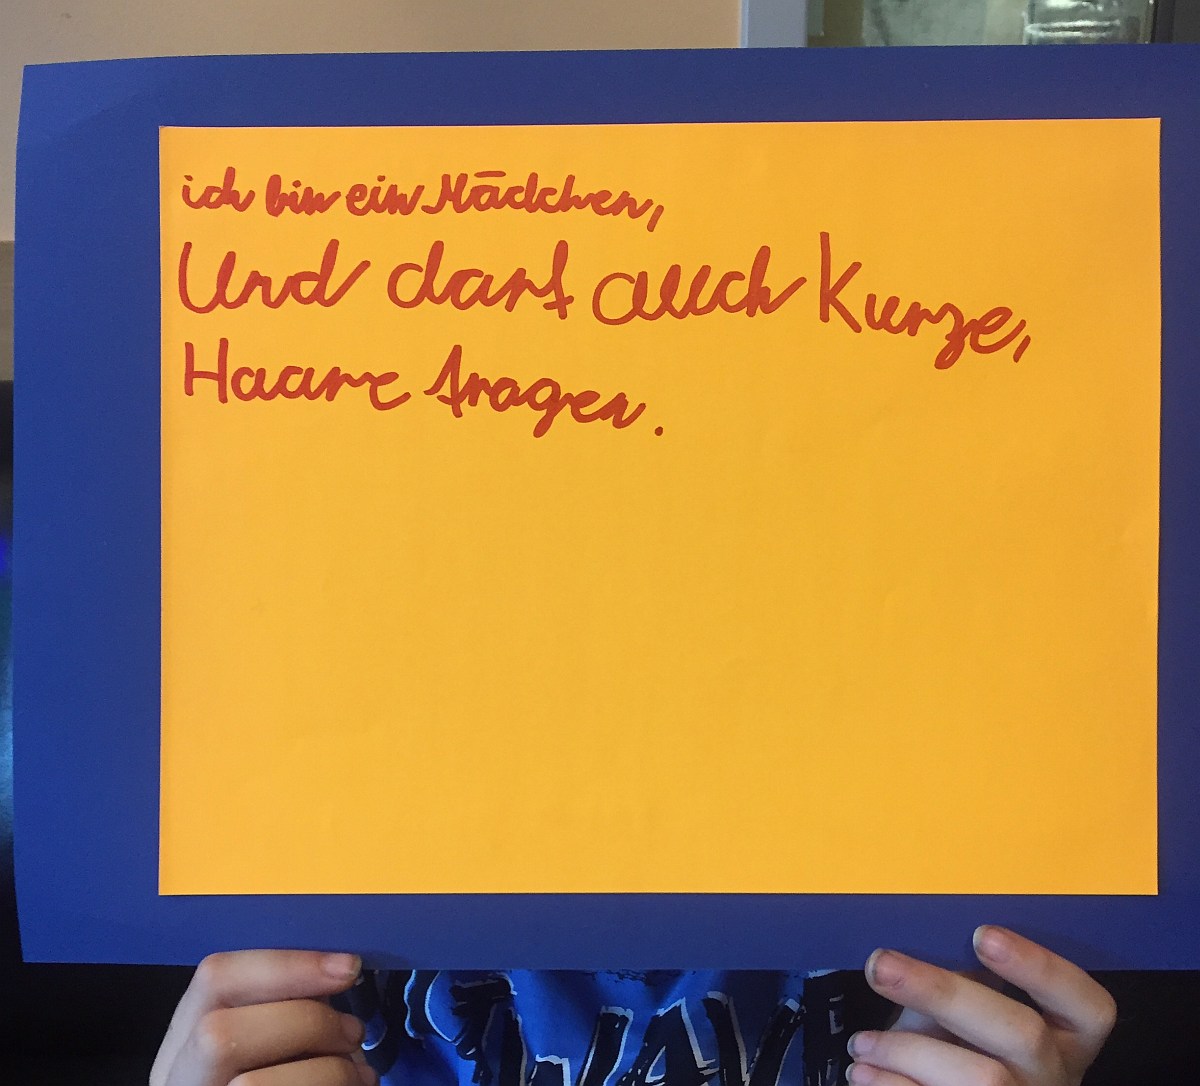 ich bin ein Mädchen,
Und darf auch Kurze,
Haare tragen.
WAVE